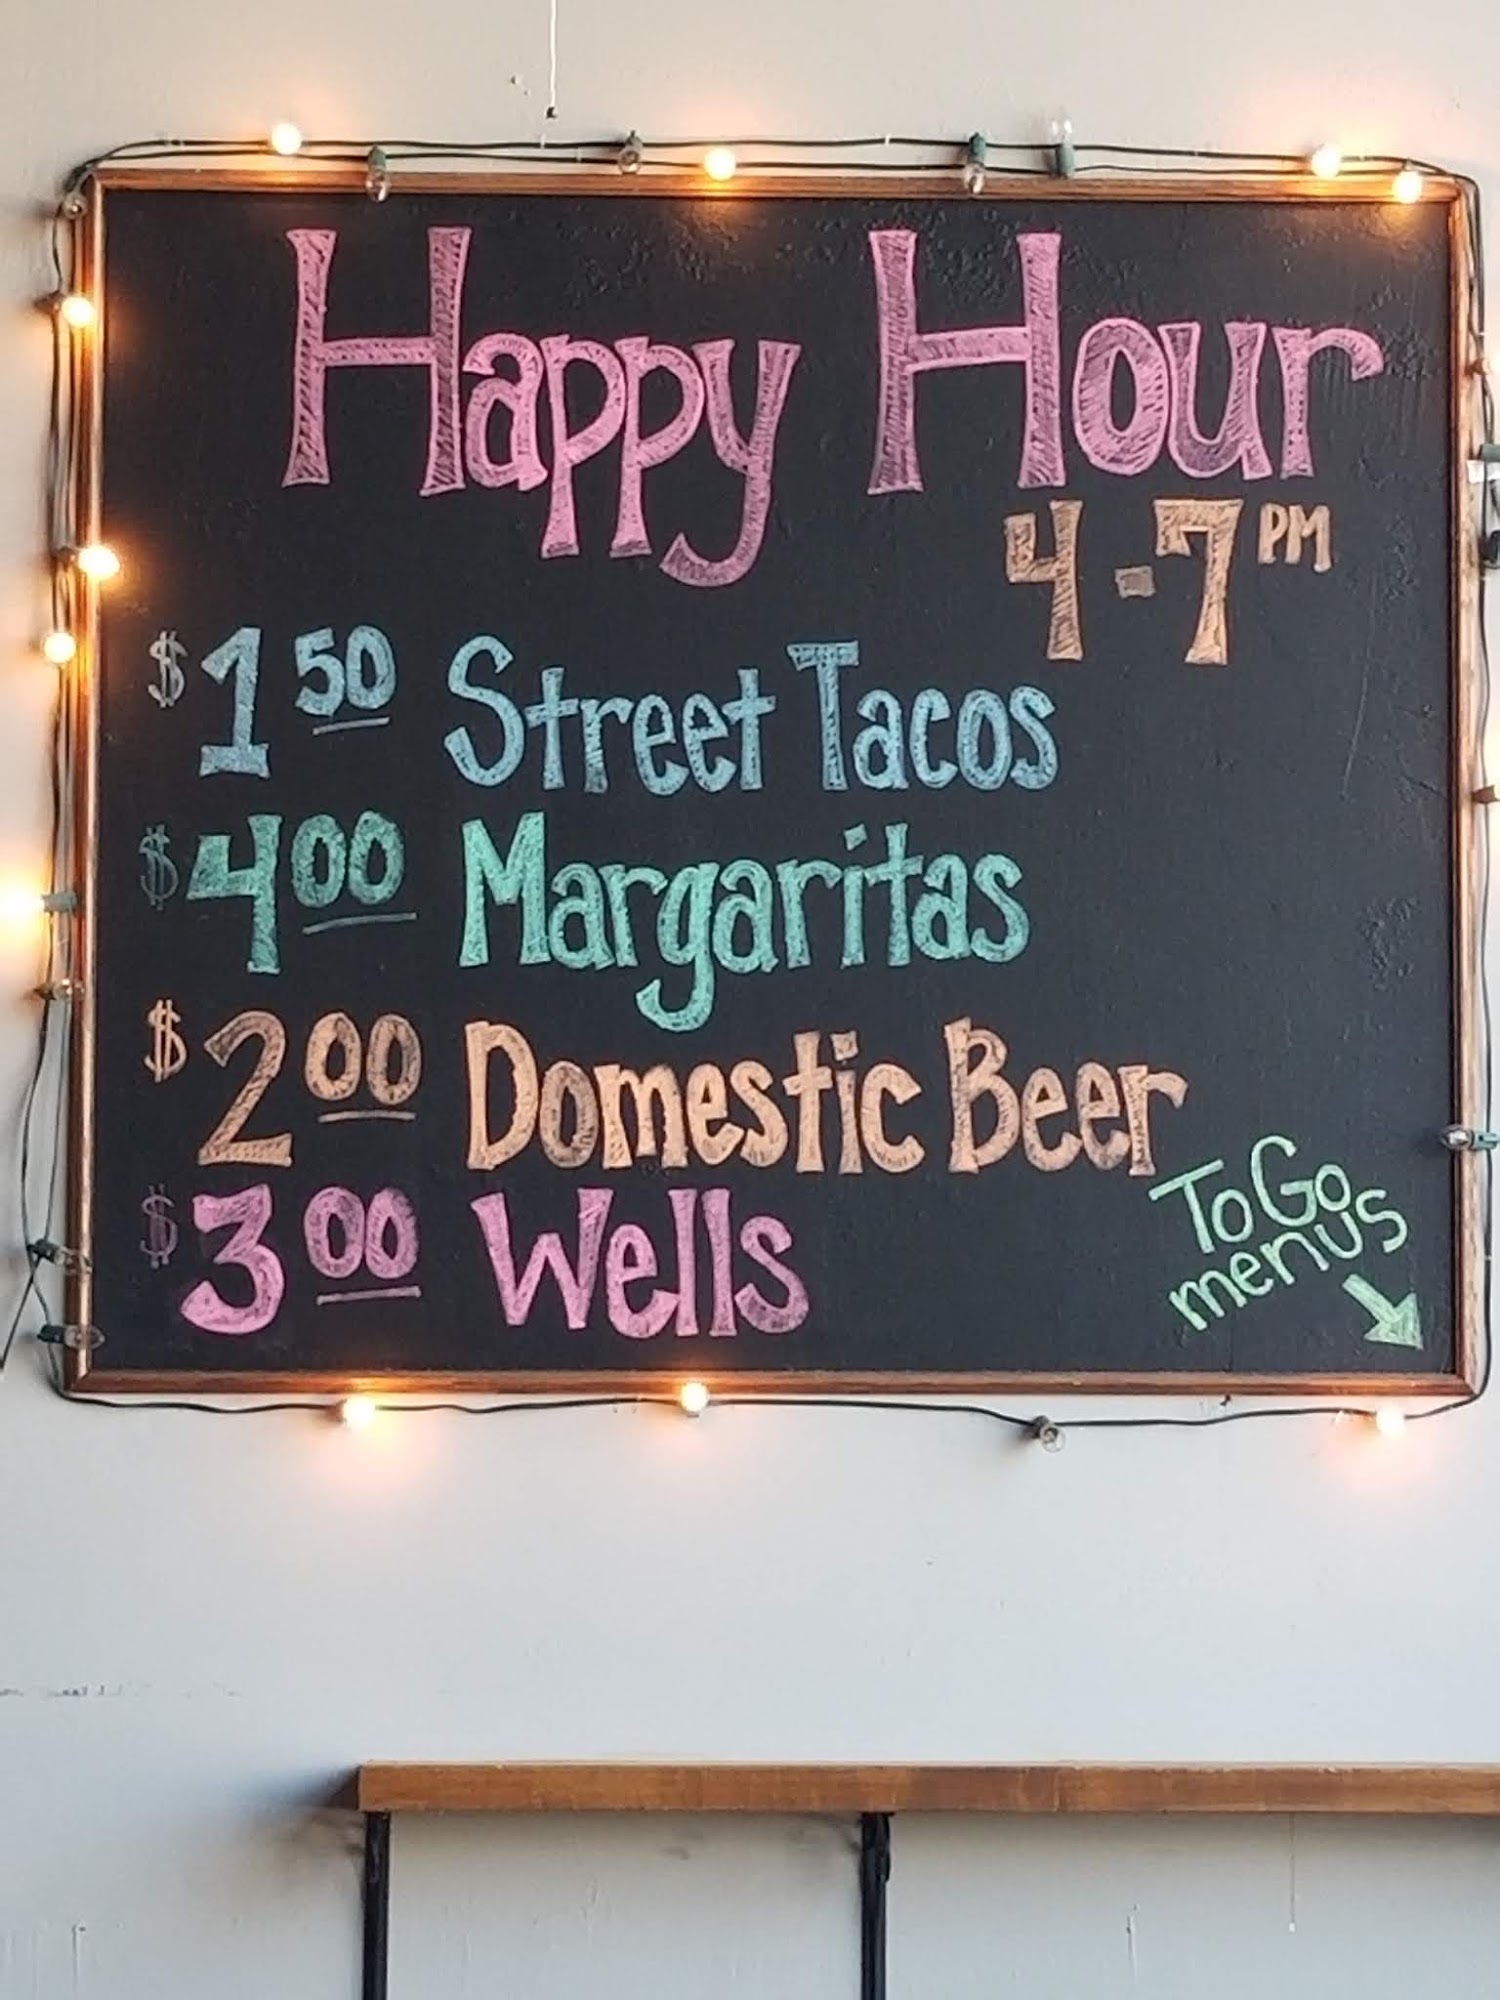 Happy Hour
4-7 PM
$1.50 Street Tacos
$4.00 Margaritas
$2.00 Domestic Beer
$3.00 Wells
To Go
menus